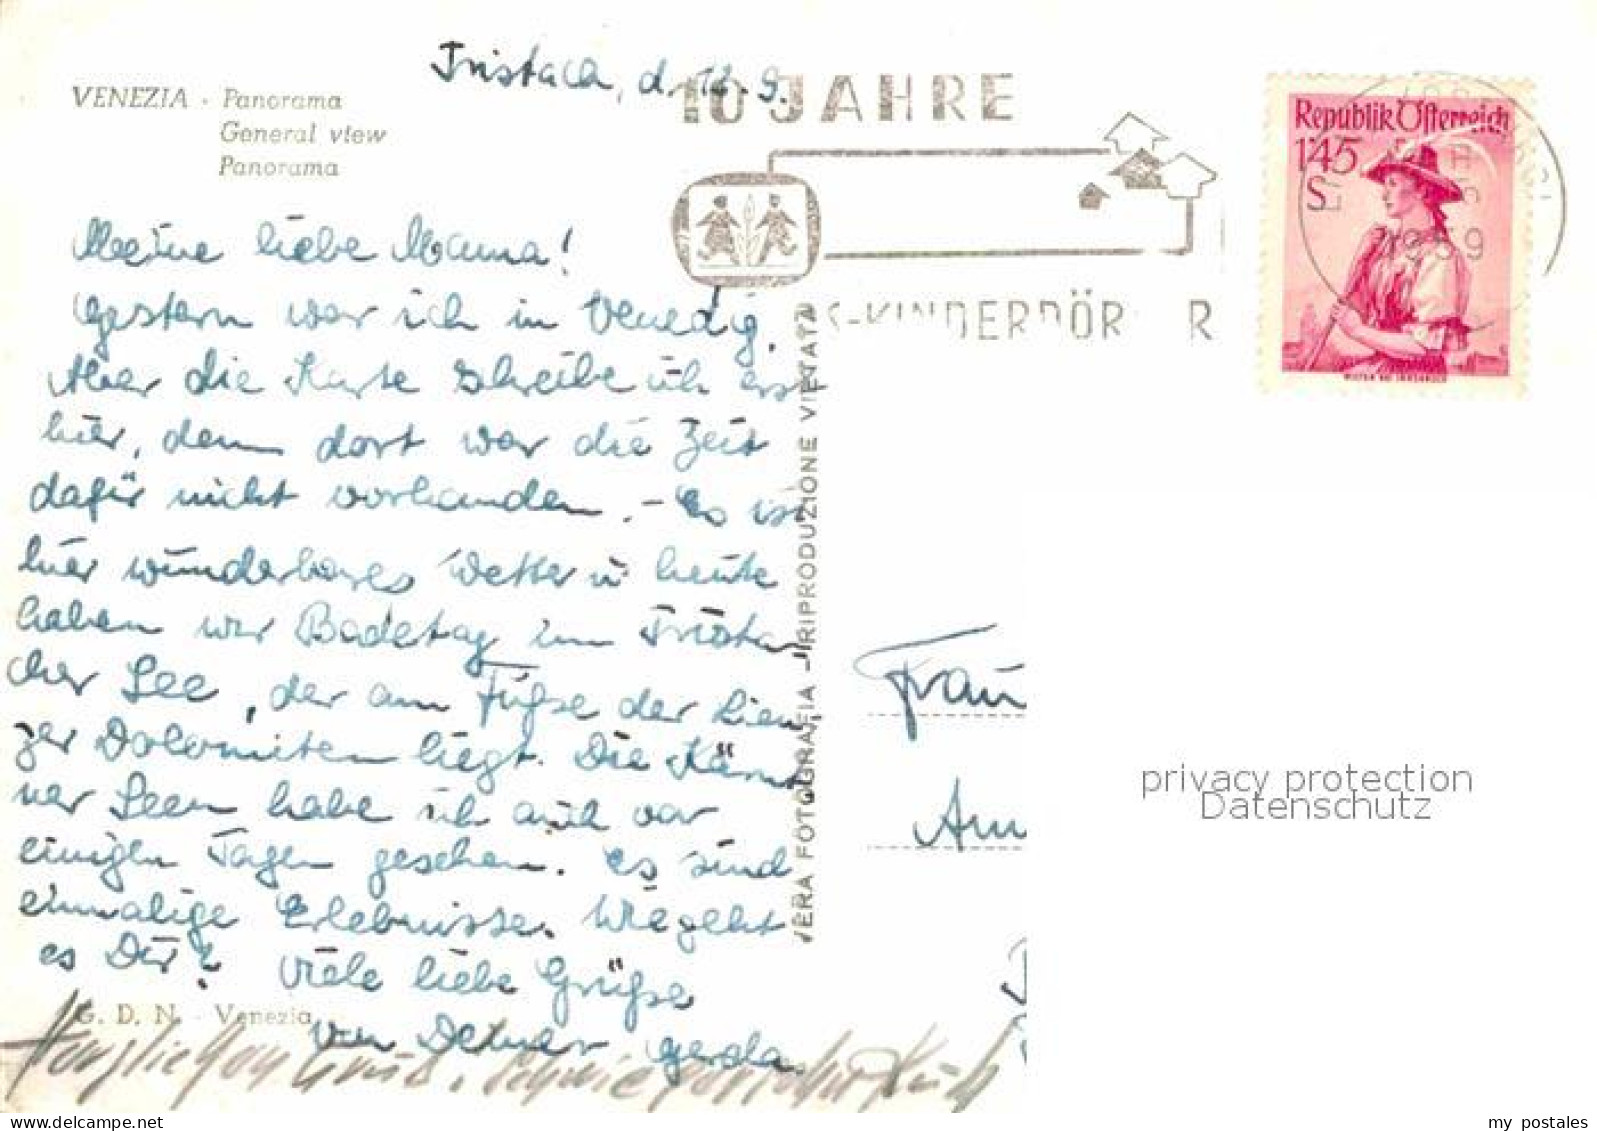 Tristach, d. 12.9.
VENEZIA · Panorama
General view
Panorama
10 JAHRE
K-KINDERDÖR R
Republik Österreich
1'45
S
1959
Meine liebe Mama!
Gestern war ich in Venedig.
Aber die Karte schreibe ich erst
hier, denn dort war die Zeit
dafür nicht vorhanden. - Es ist
hier wunderbares Wetter u. heute
haben wir Badetag im Trista
cher See, der am Fuße der Lien
zer Dolomiten liegt. Die Kärnt
ner Seen habe ich auch vor
einigen Tagen gesehen. Es sind
einmalige Erlebnisse. Wie geht
es Dir? Viele liebe Grüße
von Deiner Gerda.
Herzlichen Gruß
G. D. N. - Venezia
VERA FOTOGRAFIA - RIPRODUZIONE VIETATA
Frau
privacy protection
Datenschutz
my postales